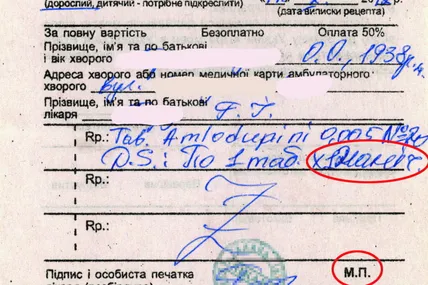 (дорослий, дитячий - потрібне підкреслити)
(дата виписки рецепта)
За повну вартість Безоплатно Оплата 50%
Прізвище, ім'я та по батькові
і вік хворого О.О., 1938р.н.
Адреса хворого або номер медичної карти амбулаторного
хворого вул.
Прізвище, ім'я та по батькові
лікаря
Rp.: Tab. Amlodipini 0,005 №20
D.S.: По 1 таб.
Rp.:
Rp.:
Підпис і особиста печатка М.П.